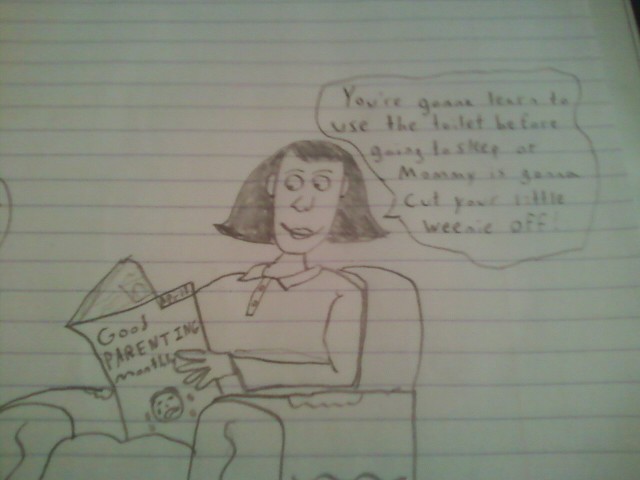 You're gonna learn to
use the toilet before
going to sleep or
Mommy is gonna
Cut your little
weenie off!
Good
PARENTING
monthly